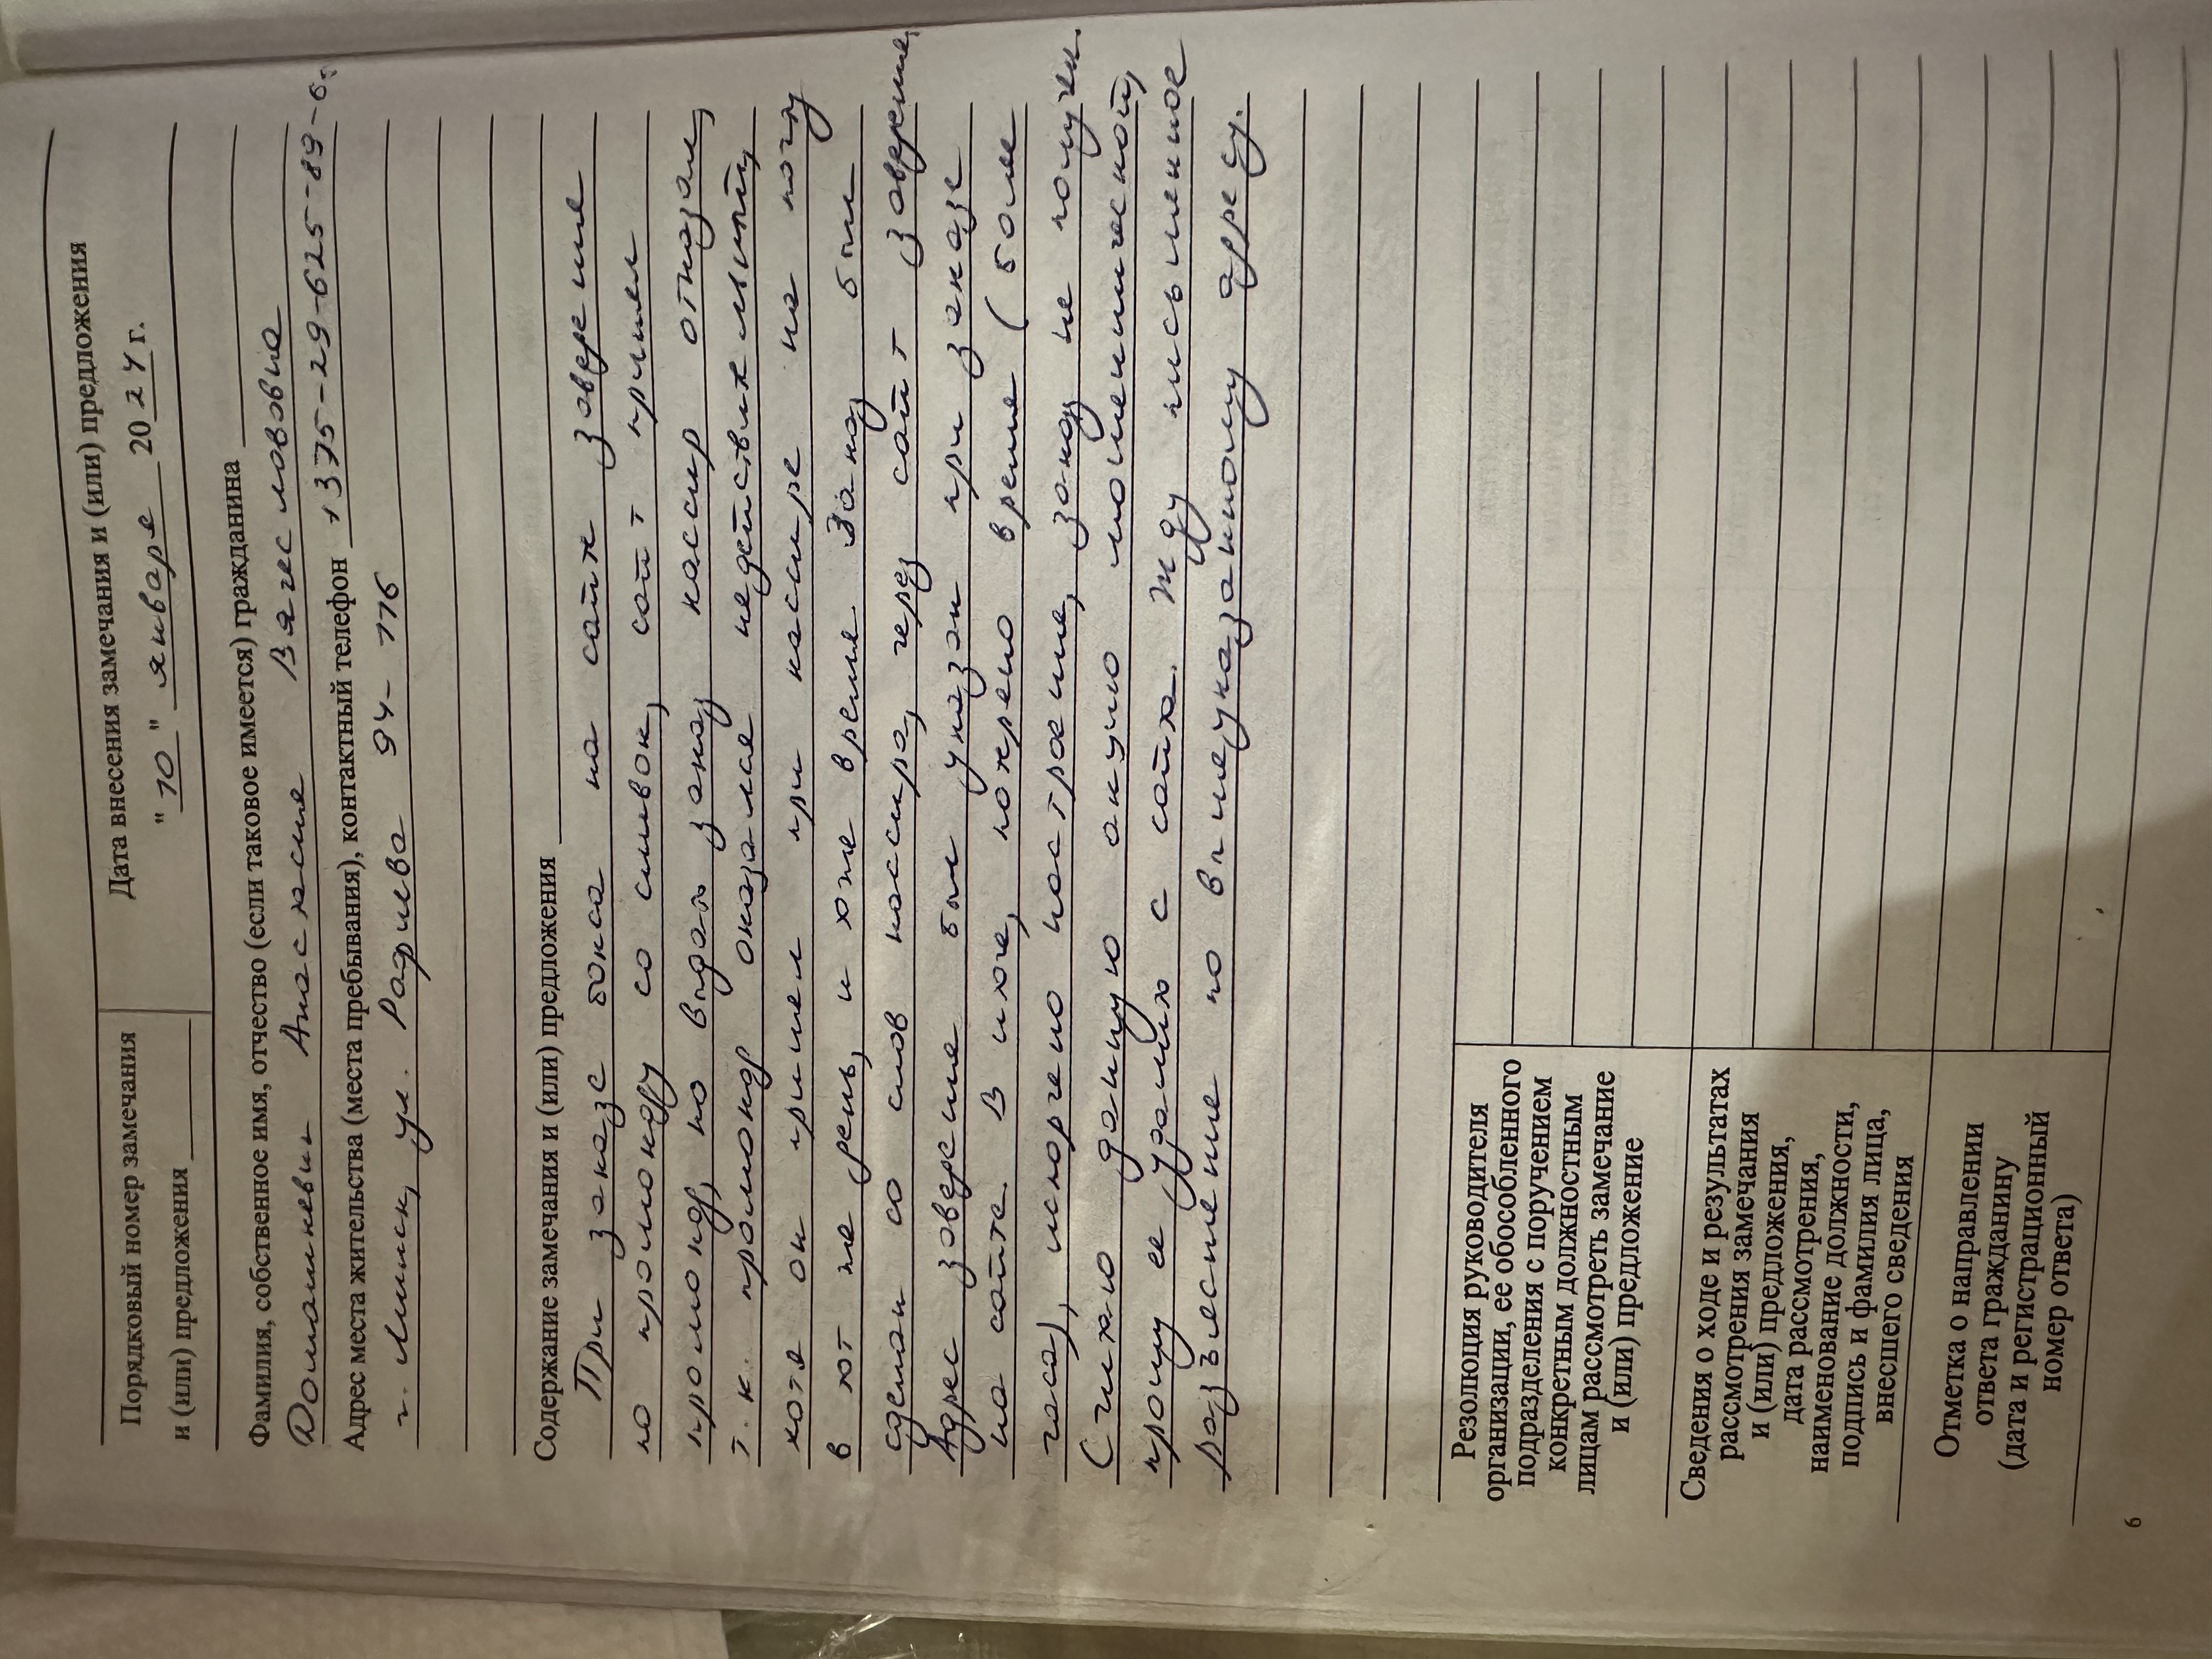 Порядковый номер замечания
и (или) предложения
Дата внесения замечания и (или) предложения
"10" января 2024 г.
Фамилия, собственное имя, отчество (если таковое имеется) гражданина
Домашкевич Анастасия Вячеславовна
Адрес места жительства (места пребывания), контактный телефон +375-29-625-89-6
г. Минск, ул. Радиева 94-176
Содержание замечания и (или) предложения
При заказе бокса на сайте заверение
по промокоду со скидкой, сайт принял
промокод, но выдал заказ, кассир отказал,
т.к. промокод оказался недействительный,
хотя он принял при кассире на пару
в тот же день, и тоже время. Заказ был
сделан со слов кассира, через сайт заверение,
Адрес заверение был указан при заказе
на сайте. В итоге, потеряно время (более
часа), испорчено настроение, заказ не получен.
Считаю данную акцию мошеннической,
прошу ее удалить с сайта. Жду письменное
разъяснение по вышеуказанному адресу.
Резолюция руководителя
организации, ее обособленного
подразделения с поручением
конкретным должностным
лицам рассмотреть замечание
и (или) предложение
Сведения о ходе и результатах
рассмотрения замечания
и (или) предложения,
дата рассмотрения,
наименование должности,
подпись и фамилия лица,
внесшего сведения
Отметка о направлении
ответа гражданину
(дата и регистрационный
номер ответа)
6